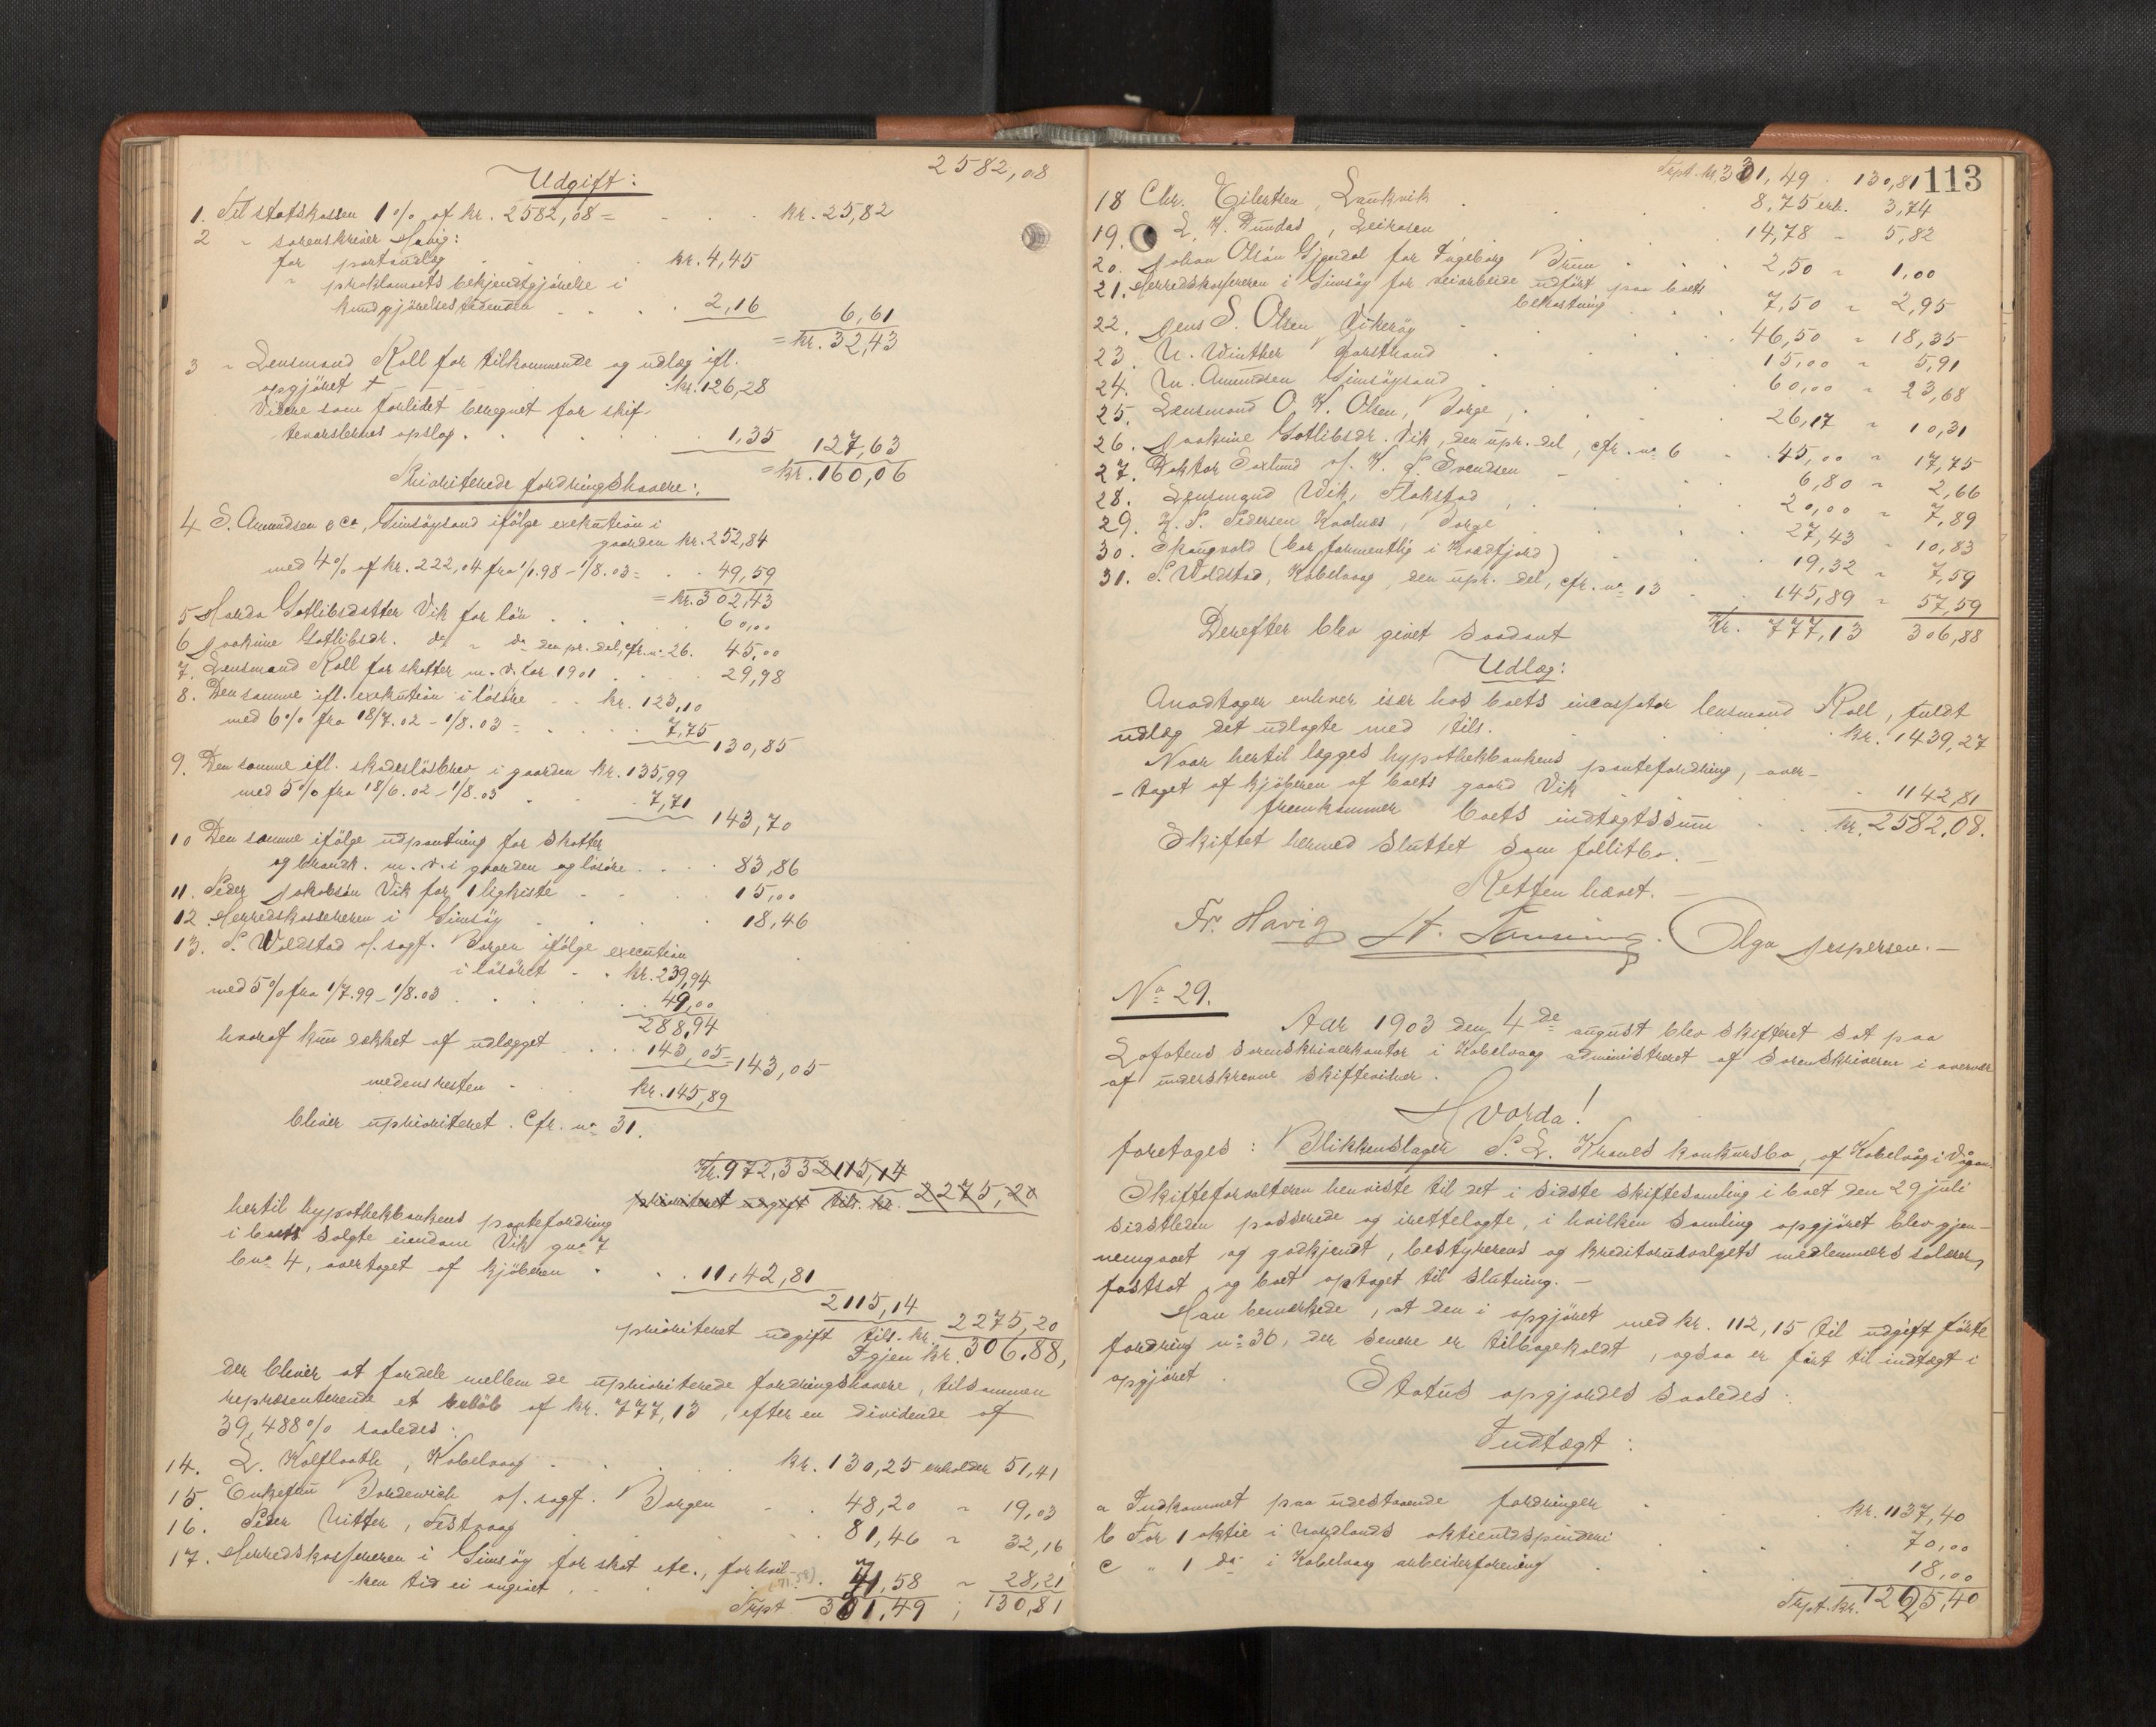 2582,08
Udgift:
1. Til statskassen 1% af kr. 2582,08 = kr. 25,82
2 " sorenskriver Havig:
for portoudlæg kr. 4,45
" proklamaets bekjendtgjørelse i
kundgjørelsestidenden 2,16 6,61
= kr. 32,43
3 " Lensmand Roll for tilkommende og udlæg ifl.
opgjøret + kr. 126,28
Videre som forlidet beregnet for skif-
tevarslernes opslag. 1,35 127,63
= kr. 160,06
Prioriterede fordringshavere:
4 S. Amundsen & Co, Gimsøysand ifølge exekution i
gaarden kr. 252,84
med 4% af kr. 222,04 fra 1/1.98 - 1/8.03 = 49,59
= kr. 302,43
5 Harda Gotlibsdatter Vik for løn 60,00
6 Joakime Gotlibsdr. do " do den pr. del, cfr. no 26. 45,00
7. Lensmand Roll for skatter m. v. for 1901 29,98
8. Den samme ifl. exekution i løsøre kr. 123,10
med 6% fra 18/7.02 - 1/8.03 = 7,75
130,85
9. Den samme ifl. skadesløsbrev i gaarden kr. 135,99
med 5% fra 18/6.02 - 1/8.03 7,71
143,70
10 Den samme ifølge udpantning for skatter
og brandk. m. v. i gaarden og løsøre 83,86
11. Peder Jakobsøn Vik for 1 ligkiste 15,00
12. Herredskassereren i Gimsøy 18,46
13. P. Woldstad v/. sagf. Borgen ifølge execution
i løsøret kr. 239,94
med 5% fra 1/7.99 - 1/8.03 49,00
288,94
hvoraf kun dækket af udlægget 143,05 = 143,05
medens resten kr. 145,89
bliver uprioriteret. Cfr. no 31.
Kr. 972,33 2115,14
prioriteret udgift tils. kr. 2275,20
hertil hypothekbankens pantefordring
i boets solgte eiendom Vik gno 7
bno 4, overtaget af kjøberen 11,42,81
2115,14
prioriteret udgift tils. kr. 2275,20
Igjen kr. 306.88,
der bliver at fordele mellem de uprioriterede fordringshavere, tilsammen
repræsenterende et beløb af kr. 777,13, efter en dividende af
39,488% saaledes:
14. L. Kalflaath, Kabelvaag kr. 130,25 erholder 51,41
15. Enkefru Bordewich v/. sagf. Borgen 48,20 " 19,03
16. Peder Ritter, Festvaag 81,46 " 32,16
17. Herredskassereren i Gimsøy for skat etc., for hvil-
ken tid ei angivet (71.58) 71,58 " 28,21
Trpt. 331,49 ; 130,81
Trpt. kr. 331,49 130,81 113
18 Chr. Eilertsen, Laukvik 8,75 erh. 3,74
19. L. K. Dundas, Leirosen 14,78 - 5,82
20. Johan Olsøn Gjendal for Ingeborg Brun 2,50 " 1,00
21. Herredskassereren i Gimsøy for veiarbeide udført paa boets
bekostning 7,50 " 2,95
22. Jens S. Olsen Vikerøy 46,50 " 18,35
23. N. Winther Jorstrand 15,00 " 5,91
24. M. Amundsen Gimsøysand 60,00 " 23,68
25. Lensmand O. K. Olsen, Borge 26,17 " 10,31
26. Joakime Gotlibsdr. Vik, den upr. del, cfr. no 6 45,00 " 17,75
27. Doktor Soxlund v/. K. L. Svendsen 6,80 " 2,66
28. Lensmand Wik, Flakstad 20,00 " 7,89
29. K. P. Pedersen Kadnes, Borge 27,43 " 10,83
30. Skougvold (bor formentlig i Kvædfjord) 19,32 " 7,59
31. P. Woldstad, Kabelvaag, den upr. del, cfr. no 13 145,89 " 57,59
Kr. 777,13 306,88
Derefter blev givet saadant
Udlæg:
Anodtager enhver især hos boets incassator lensmand Roll, fuldt
udlæg det udlagte med tils. kr. 1439,27
Naar hertil lægges hypothekbankens pantefordring, over-
- taget af kjøberen af boets gaard Vik 1142,81
fremkommer boets indtægtssum kr. 2582,08.
Skiftet hermed sluttet som fallitbo. -
Retten hævet. -
Fr. Havig Olga Jespersen. -
No 29.
Aar 1903 den 4de august blev skifteret sat paa
Lofotens sorenskriverkontor i Kabelvaag administreret af sorenskriveren i overvær
af underskrevne skiftevidner.
Hvorda!
foretoges: Blikkenslager P. L. Kraneds konkursbo, af Kabelvåg i Vågan.
Skifteforvalteren henviste til det i sidste skiftesamling i boet den 29 juli
sidstleden passerede og irettelagte, i hvilken samling opgjøret blev gjen-
nemgaaet og godkjendt, bestyrerens og kreditorudvalgets medlemmers salærer,
fastsat og boet optaget til slutning. -
Man bemærkede, at den i opgjøret med kr. 112,15 til udgift førte
fordring no 36, der senere er tilbagekaldt, ogsaa er ført til indtægt i
opgjøret.
Status opgjordes saaledes:
Indtægt:
a Indkommet paa udestaaende fordringer kr. 1137,40
b For 1 aktie i nordlands aktieuldspinderi 70,00
c " 1 do i Kabelvaag arbeiderforening 18,00
Trpt. kr. 1225,40